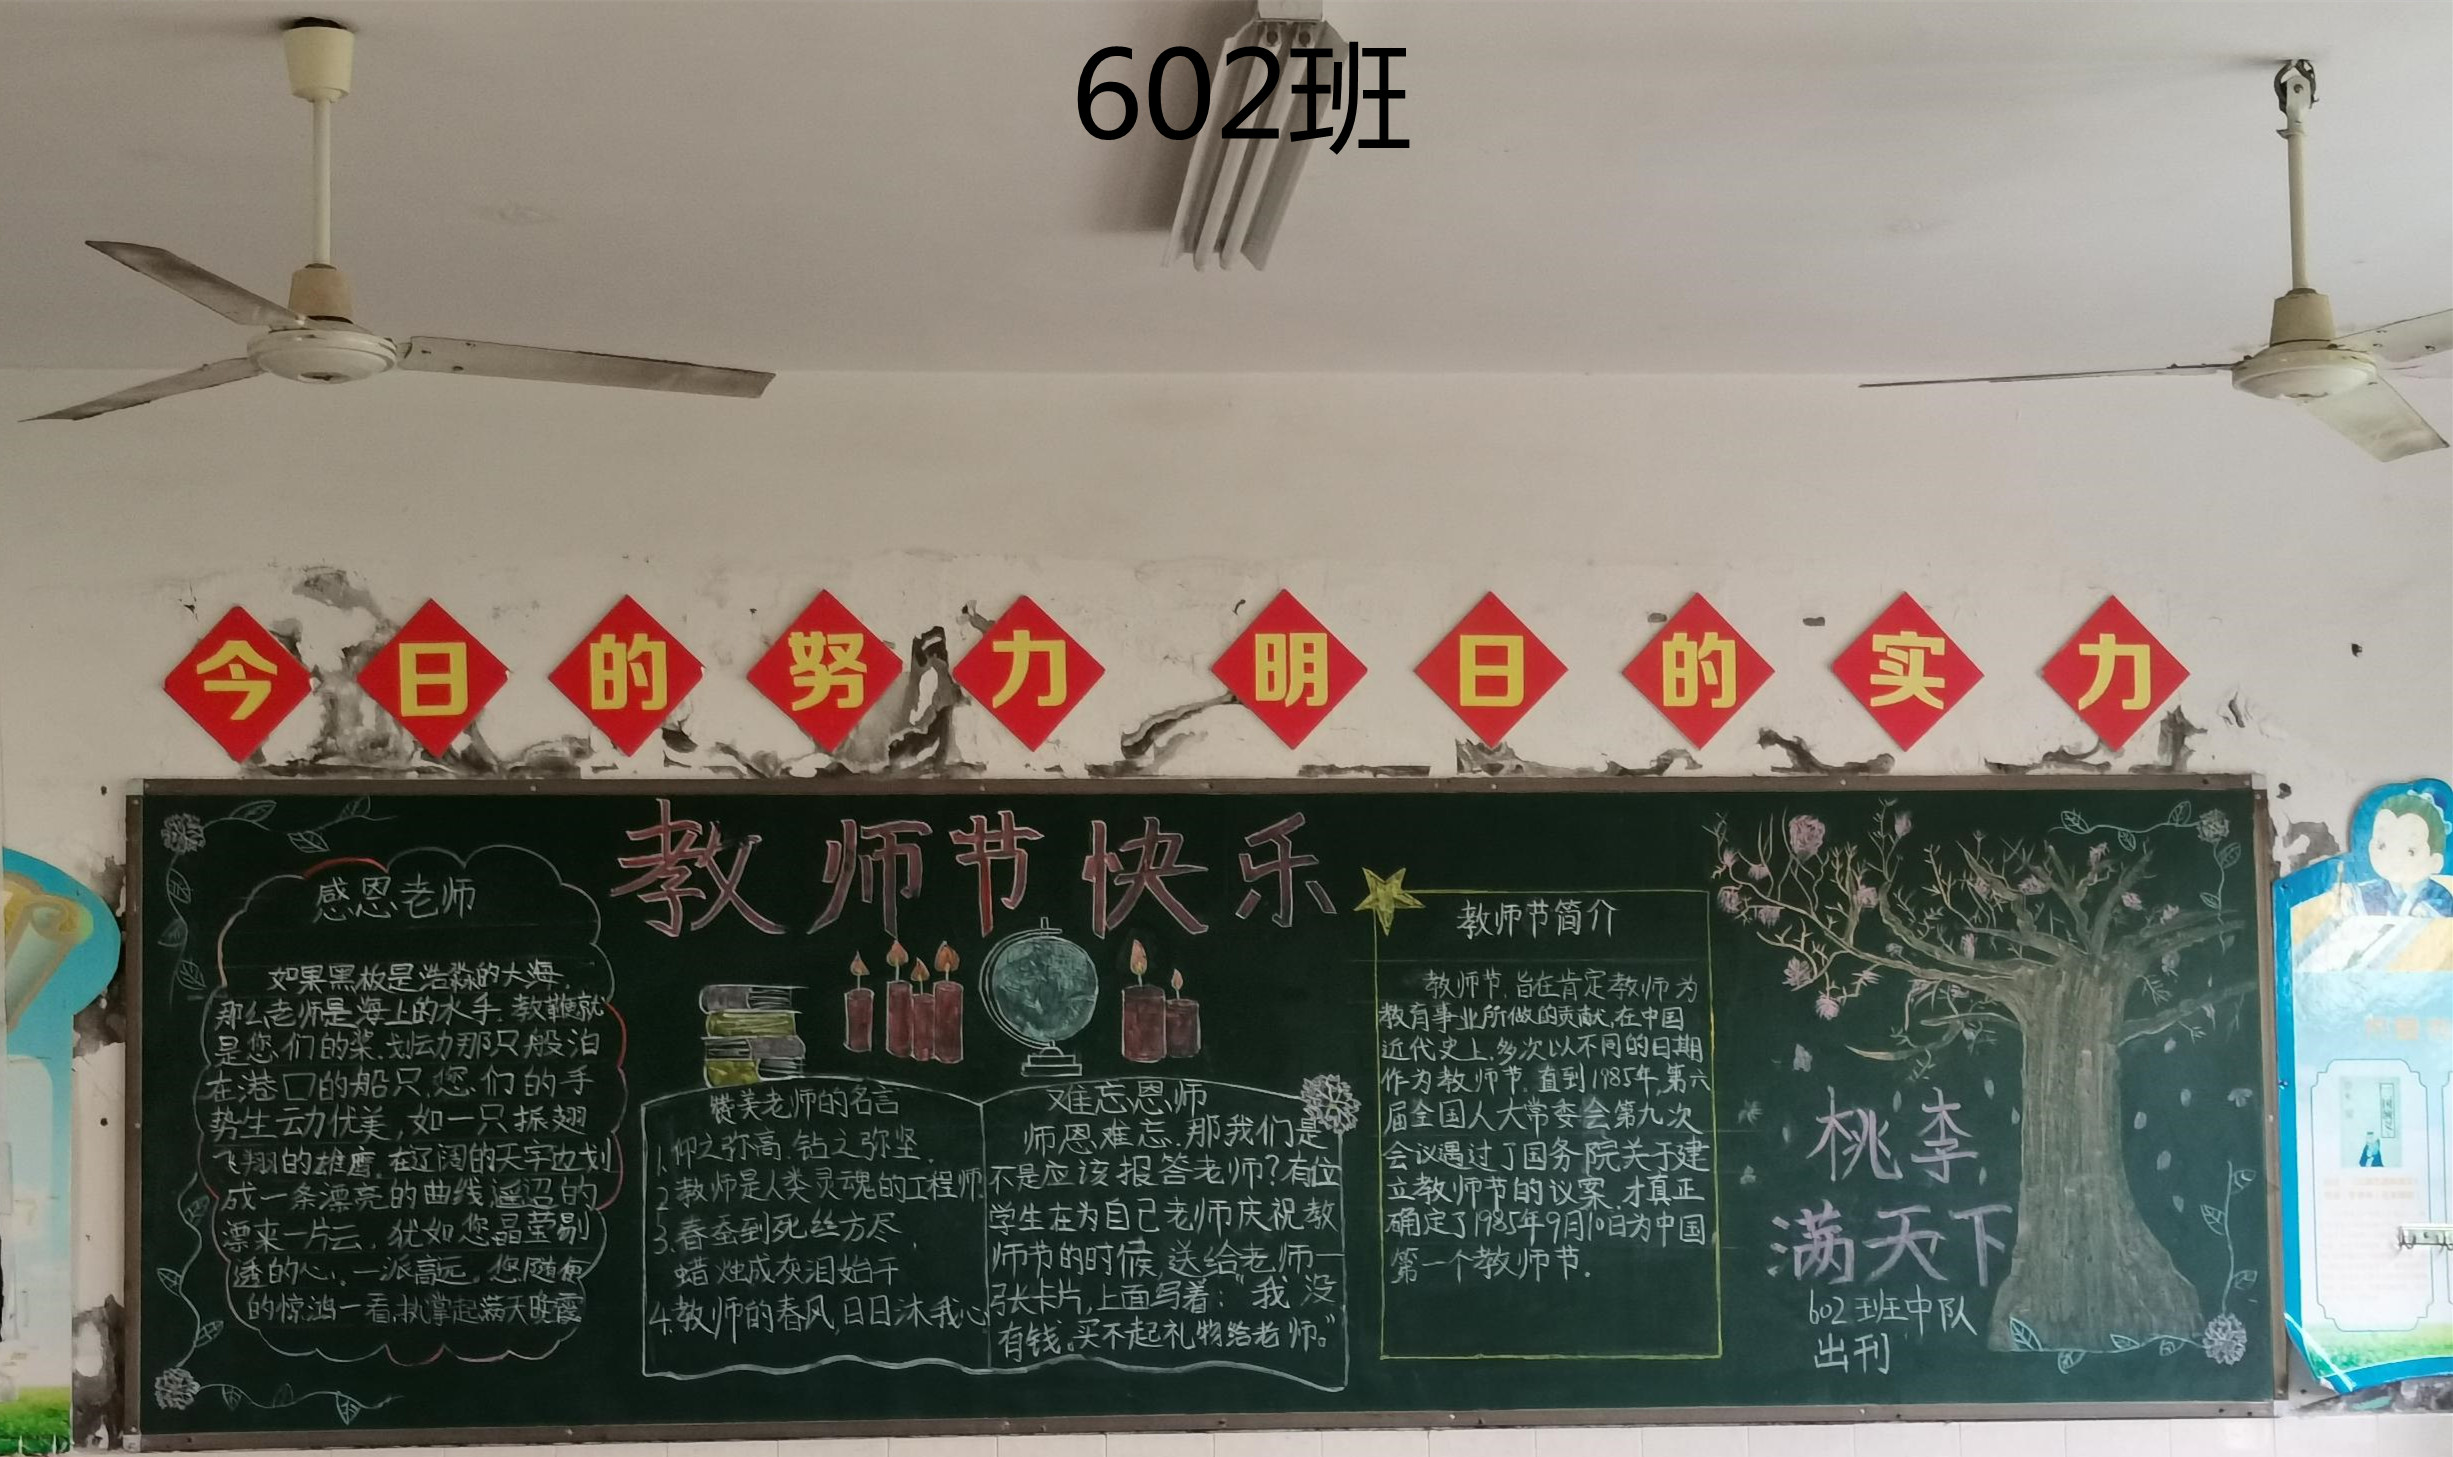 602班
今日的努力 明日的实力
教师节快乐
感恩老师
如果黑板是浩淼的大海,
那么老师是海上的水手.教鞭就
是您们的桨.划动那只般泊
在港口的船只.您们的手
势生云力优美,如一只振翅
飞翔的雄鹰.在辽阔的天宇边划
成一条漂亮的曲线遥迢的
漂来一片云.犹如您晶莹剔
透的心.一派高远.您随便
的惊鸿一看.执掌起满天晚霞
赞美老师的名言
1.仰之弥高.钻之弥坚.
2.教师是人类灵魂的工程师.
3.春蚕到死丝方尽,
蜡烛成灰泪始干
4.教师的春风,日日沐我心
难忘恩师
师恩难忘.那我们是
不是应该报答老师?有位
学生在为自己老师庆祝教
师节的时候,送给老师一
张卡片,上面写着:“我没
有钱.买不起礼物给老师。”
教师节简介
教师节,旨在肯定教师为
教育事业所做的贡献,在中国
近代史上,多次以不同的日期
作为教师节.直到1985年,第六
届全国人大常委会第九次
会议通过了国务院关于建
立教师节的议案.才真正
确定了1985年9月10日为中国
第一个教师节.
桃李
满天下
602班中队
出刊